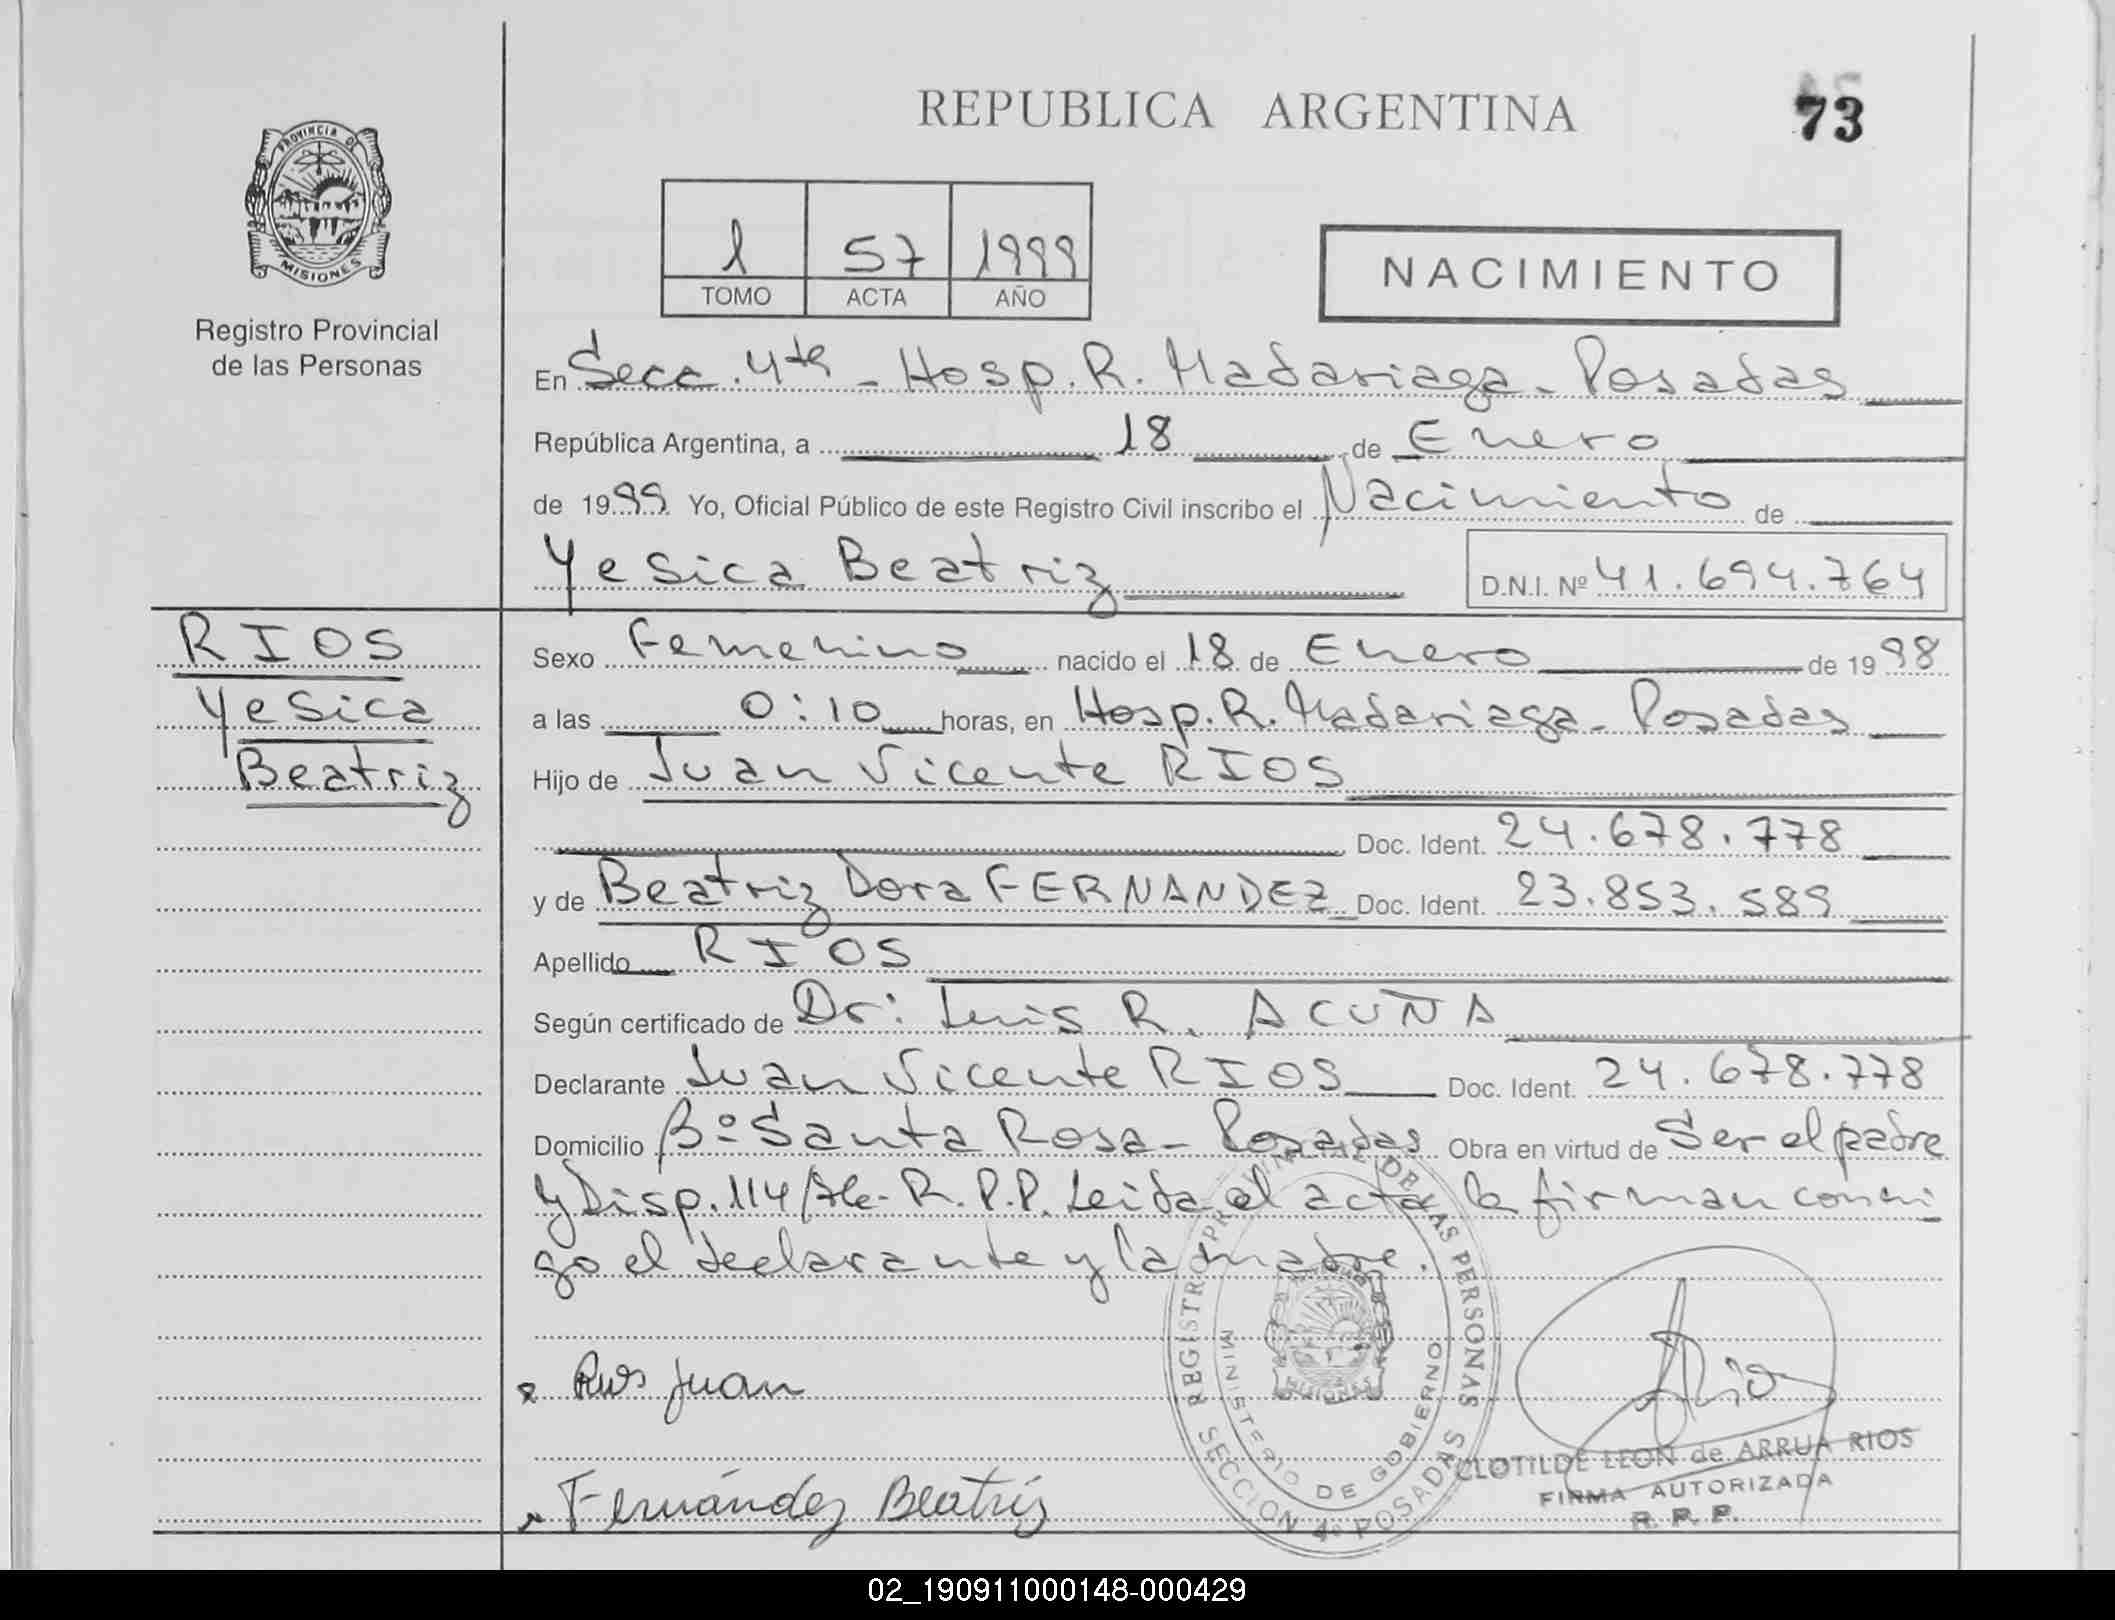 REPUBLICA ARGENTINA
73
PROVINCIA DE
MISIONES
Registro Provincial
de las Personas
1 57 1999
TOMO ACTA AÑO
NACIMIENTO
En Secc. 4ta - Hosp. R. Madariaga - Posadas
República Argentina, a 18 de Enero
de 1999 Yo, Oficial Público de este Registro Civil inscribo el Nacimiento de
Yesica Beatriz D.N.I. Nº 41.694.764
RIOS
Yesica
Beatriz
Sexo Femenino nacido el 18 de Enero de 1998
a las 0:10 horas, en Hosp. R. Madariaga - Posadas
Hijo de Juan Vicente RIOS
Doc. Ident. 24.678.778
y de Beatriz Dora FERNANDEZ Doc. Ident. 23.853.589
Apellido RIOS
Según certificado de Dr: Luis R. ACUÑA
Declarante Juan Vicente RIOS Doc. Ident. 24.678.778
Domicilio Bº Santa Rosa - Posadas Obra en virtud de Ser el padre
y Disp. 114 R.P.P. Leida el acta la firman conmi
go el declarante y la madre.
Rios Juan
Fernández Beatriz
REGISTRO PROVINCIAL DE LAS PERSONAS
MINISTERIO DE GOBIERNO
MISIONES
SECCION 4º POSADAS
CLOTILDE LEON de ARRUA RIOS
FIRMA AUTORIZADA
R. P. P.
02_190911000148-000429